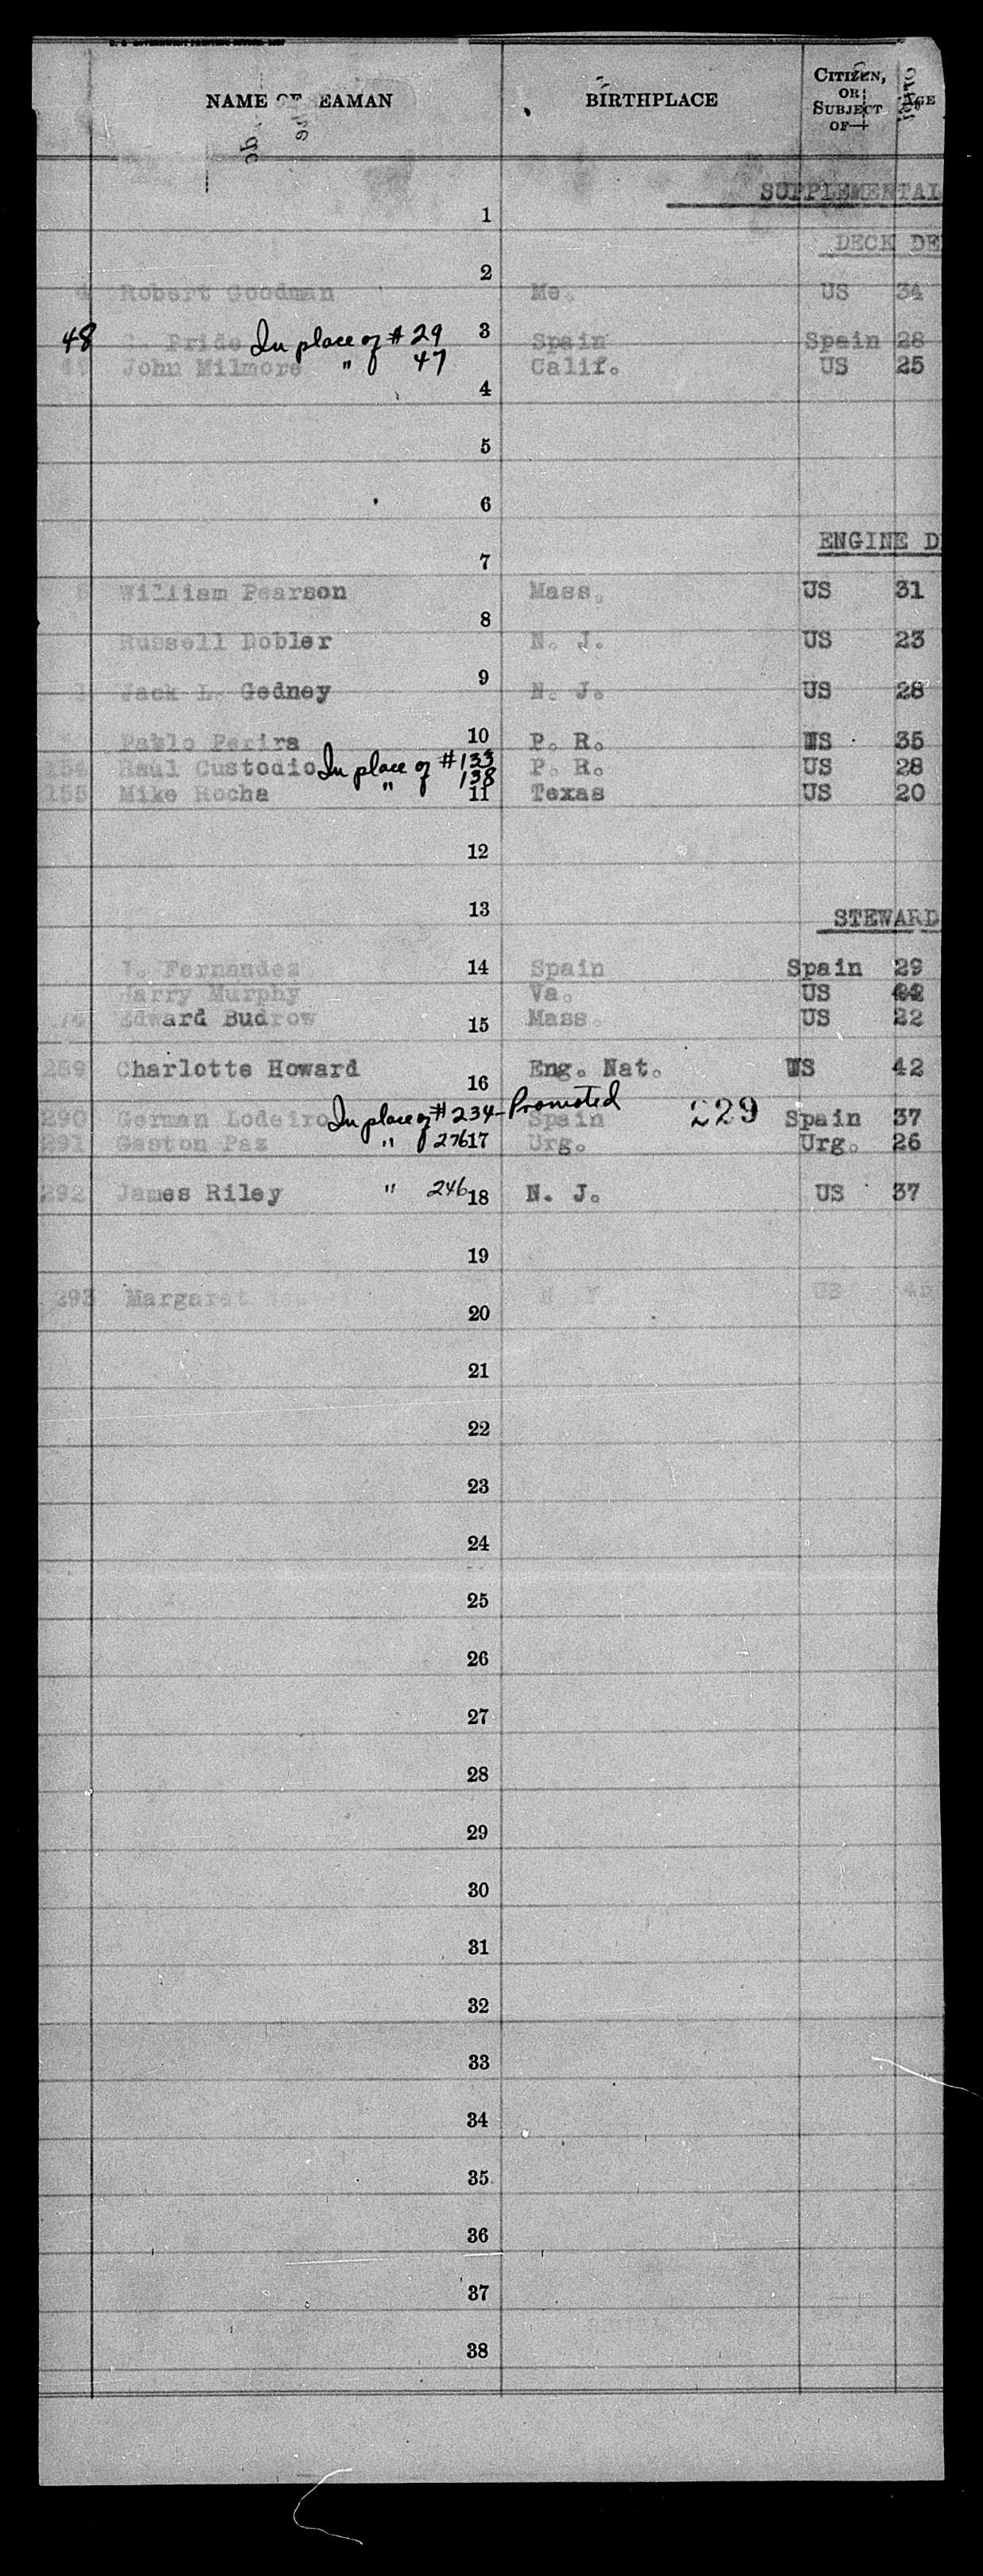 NAME OF SEAMAN BIRTHPLACE CITIZEN, OR SUBJECT OF— AGE
SUPPLEMENTAL
1
DECK DE
2
Robert Goodman Me. US 34
48 Pride In place of # 29 3 Spain Spain 28
John Milmore " 47 Calif. US 25
4
5
6
ENGINE D
7
William Pearson Mass. US 31
8
Russell Dobler N. J. US 23
9
Jack L. Gedney N. J. US 28
10
Pablo Perira P. R. US 35
Raul Custodio In place of #133 P. R. US 28
155 Mike Rocha " 138 11 Texas US 20
12
13
STEWARD
Fernandez 14 Spain Spain 29
Harry Murphy Va. US
Edward Budrow 15 Mass. US 22
289 Charlotte Howard Eng. Nat. US 42
16
290 German Lodeiro In place of # 234 - Promoted Spain 229 Spain 37
291 Gaston Paz " 276 17 Urg. Urg. 26
292 James Riley " 246 18 N. J. US 37
19
293 Margaret N Y US 45
20
21
22
23
24
25
26
27
28
29
30
31
32
33
34
35
36
37
38